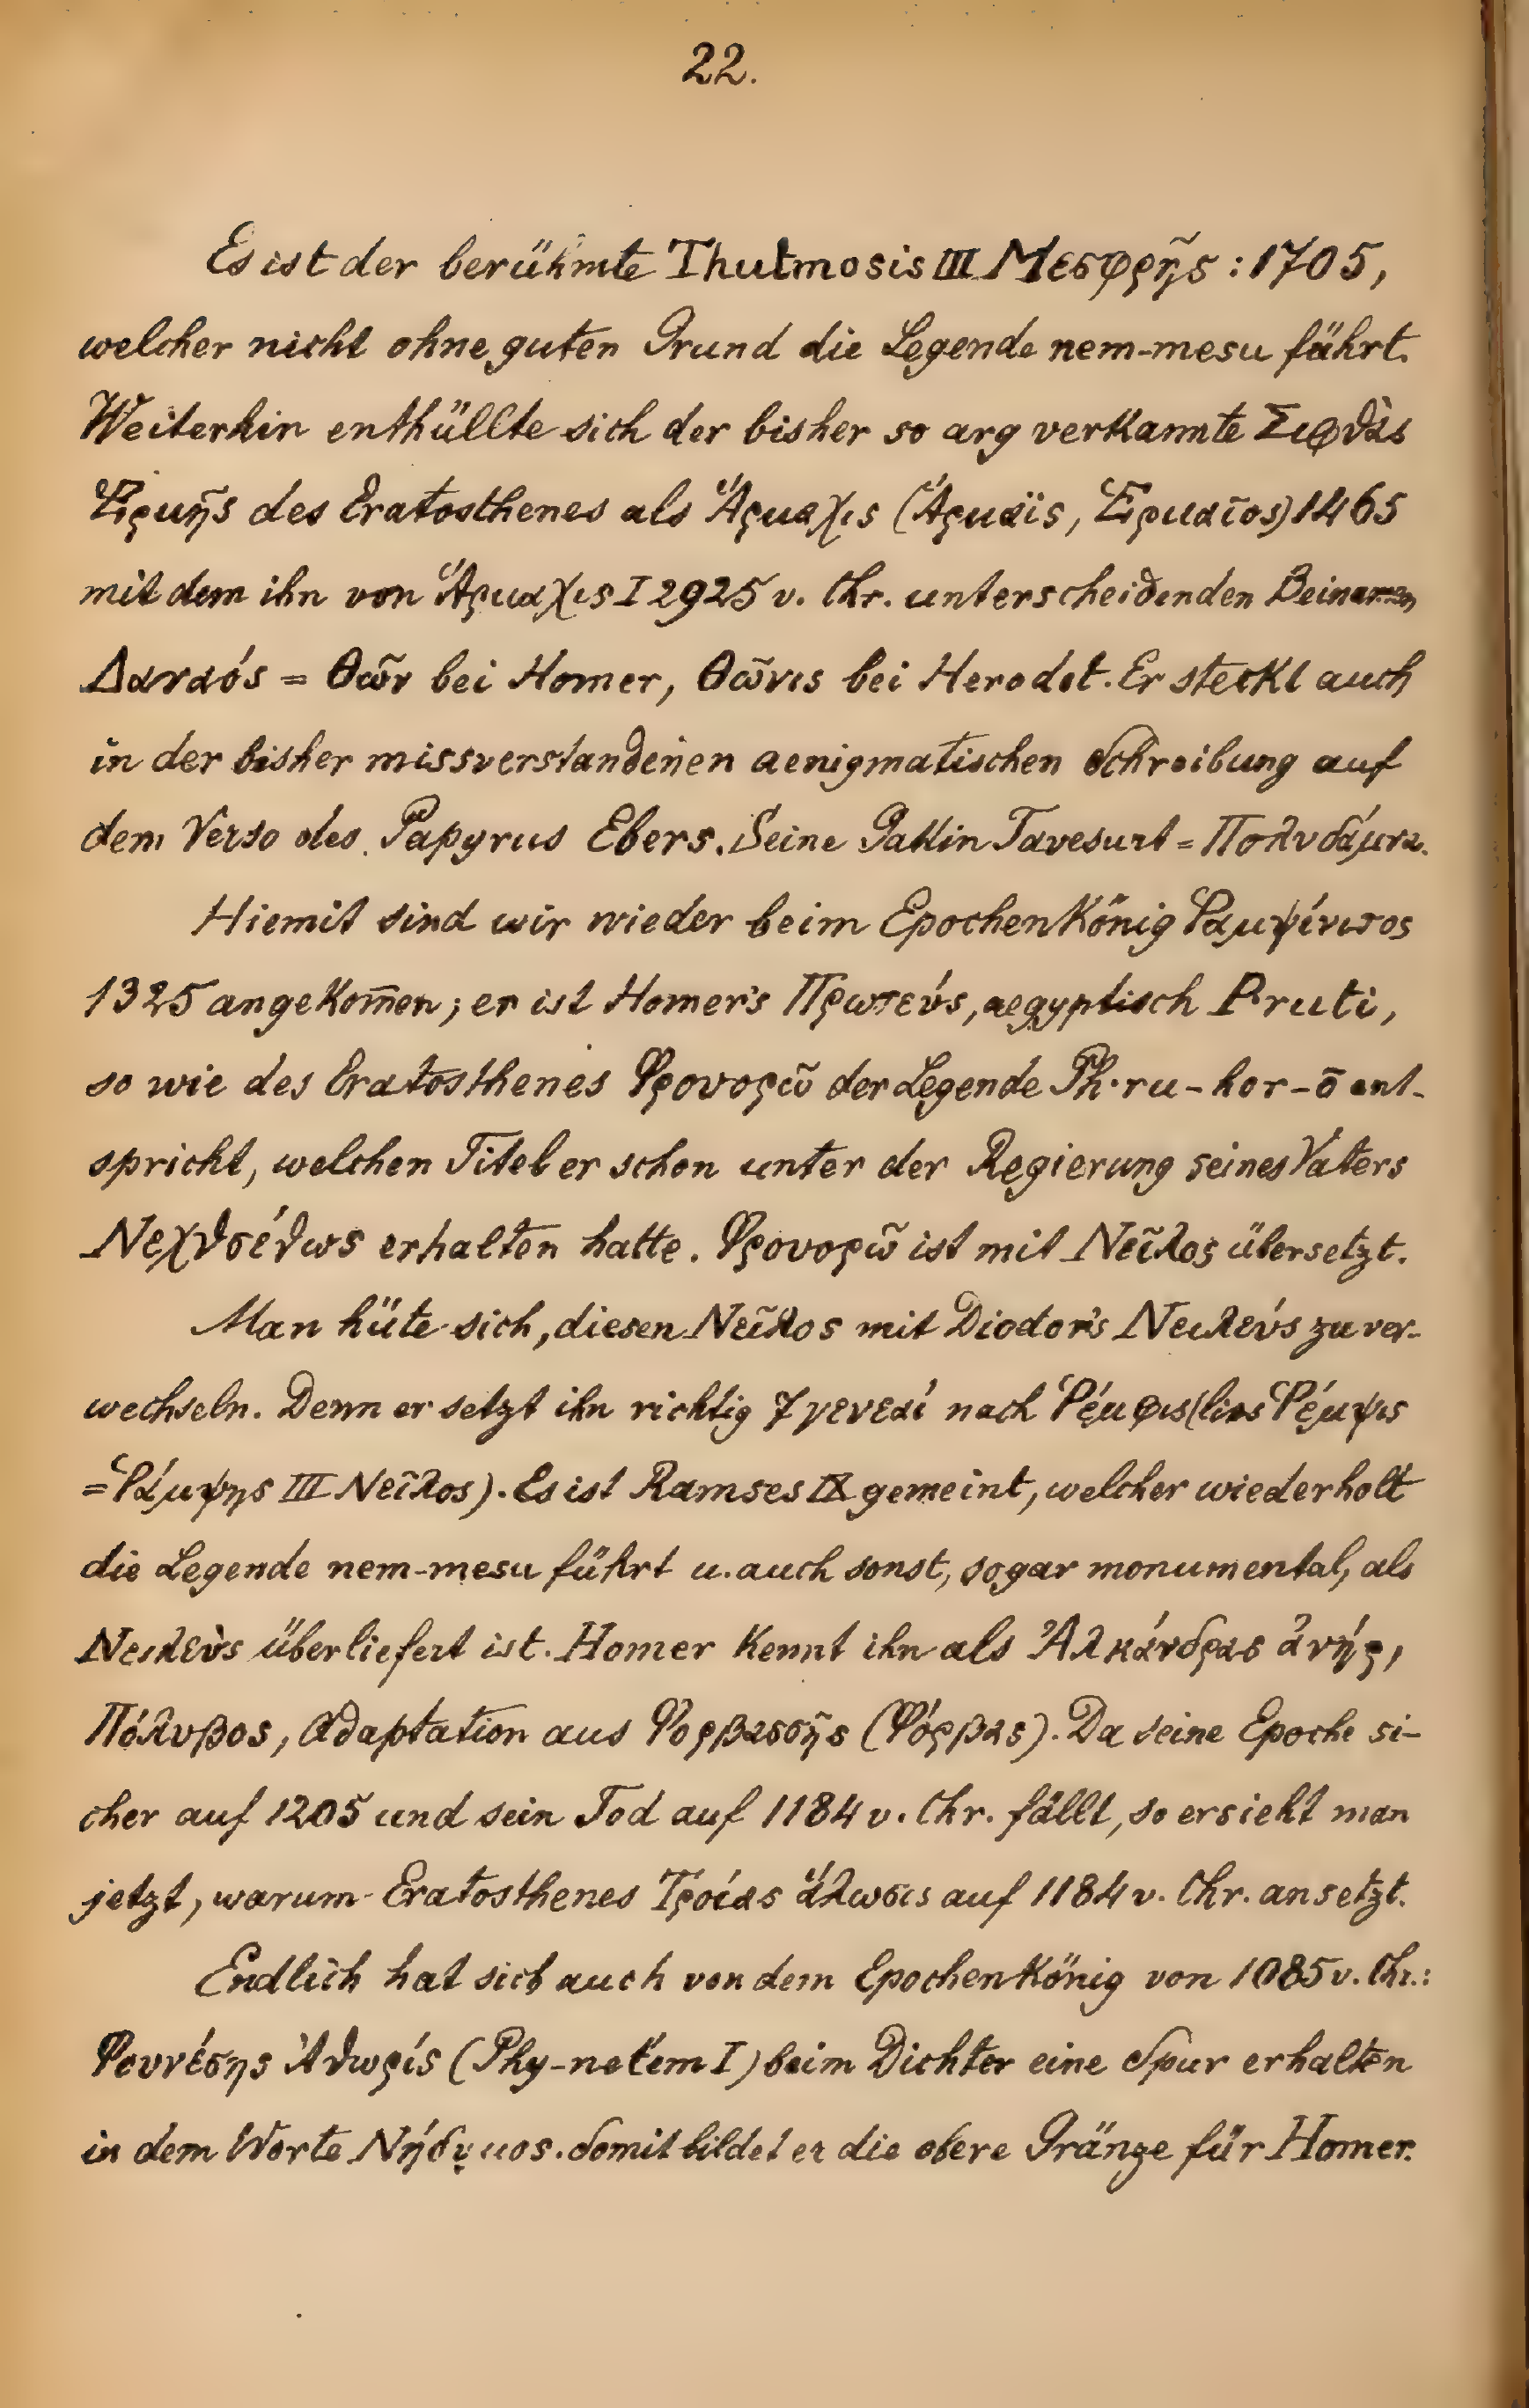 22.
Es ist der berühmte Thutmosis III Μεσφρῆς : 1705,
welcher nicht ohne guten Grund die Legende nem-mesu führt.
Weiterhin enthüllte sich der bisher so arg verkannte Σιφθὰς
Ἑρμῆς des Eratosthenes als Ἅρμαχις (Ἅρμαϊς, Ἑρμαῖος) 1465
mit dem ihn von Ἅρμαχις I 2925 v. Chr. unterscheidenden Beinamen
Δαναός = Θῶν bei Homer, Θῶνις bei Herodot. Er steckt auch
in der bisher missverstandenen aenigmatischen Schreibung auf
dem Verso des Papyrus Ebers. Seine Gattin Tavesurt = Πολυδάμνα.
Hiemit sind wir wieder beim Epochenkönig Ῥαμψίνιτος
1325 angekom̄en; er ist Homer's Πρωτεύς, aegyptisch Pruti,
so wie des Eratosthenes Φρουορῶ der Legende Ph-ru-hor-ō ent-
spricht, welchen Titel er schon unter der Regierung seines Vaters
Νεχθσέθως erhalten hatte. Φρουορῶ ist mit Νεῖλος übersetzt.
Man hüte sich, diesen Νεῖλος mit Diodor's Νειλεύς zu ver-
wechseln. Denn er setzt ihn richtig 7 γενεαί nach Ῥέμφις (lies Ῥέμψις
= Ῥάμψης III Νεῖλος). Es ist Ramses IX gemeint, welcher wiederholt
die Legende nem-mesu führt u. auch sonst, sogar monumental, als
Νειλεὺς überliefert ist. Homer kennt ihn als Ἀλκάνδρας ἀνήρ,
Πόλυβος, Adaptation aus Φορβασσῆς (Φόρβας). Da seine Epoche si-
cher auf 1205 und sein Tod auf 1184 v. Chr. fällt, so ersieht man
jetzt, warum Eratosthenes Τροίας ἅλωσις auf 1184 v. Chr. ansetzt.
Endlich hat sich auch von dem Epochenkönig von 1085 v. Chr.:
Φουνέσης Ἀθωρίς (Phy-netem I) beim Dichter eine Spur erhalten
in dem Worte Νήδυμος. Somit bildet er die obere Gränze für Homer.